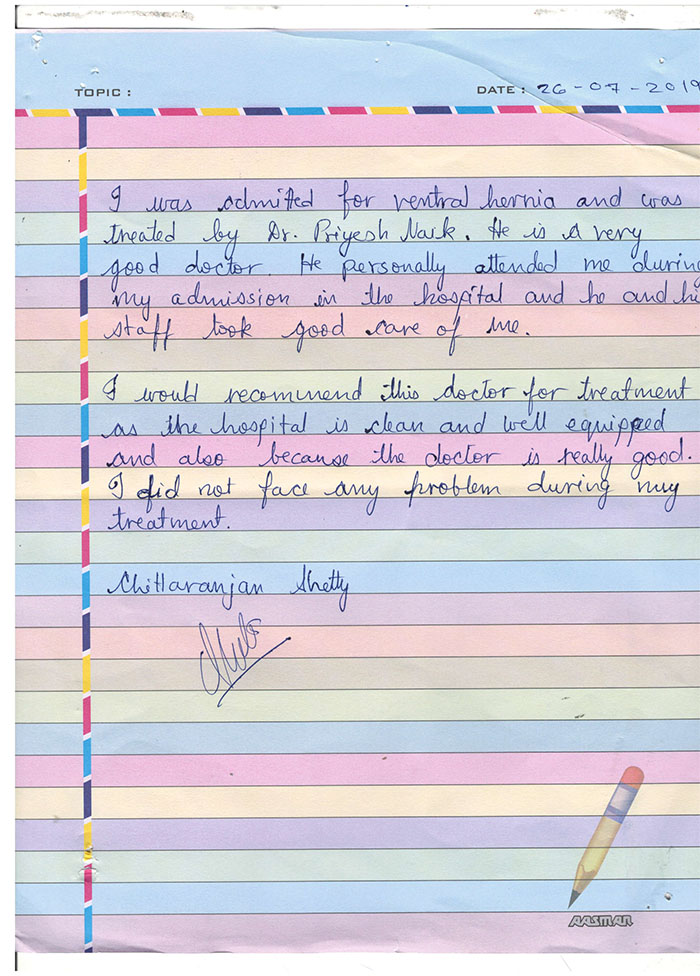 TOPIC :
DATE : 26-07-2019
I was admitted for ventral hernia and was
treated by Dr. Priyesh Naik. He is a very
good doctor. He personally attended me during
my admission in the hospital and he and hi
staff took good care of me.
I would recommend this doctor for treatment
as the hospital is clean and well equipped
and also because the doctor is really good.
I did not face any problem during my
treatment.
Chittaranjan Shetty
AASMAN